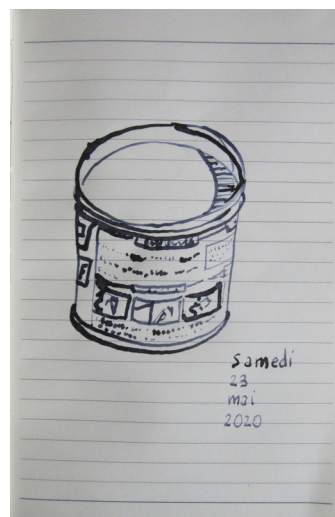 Samedi
23
mai
2020